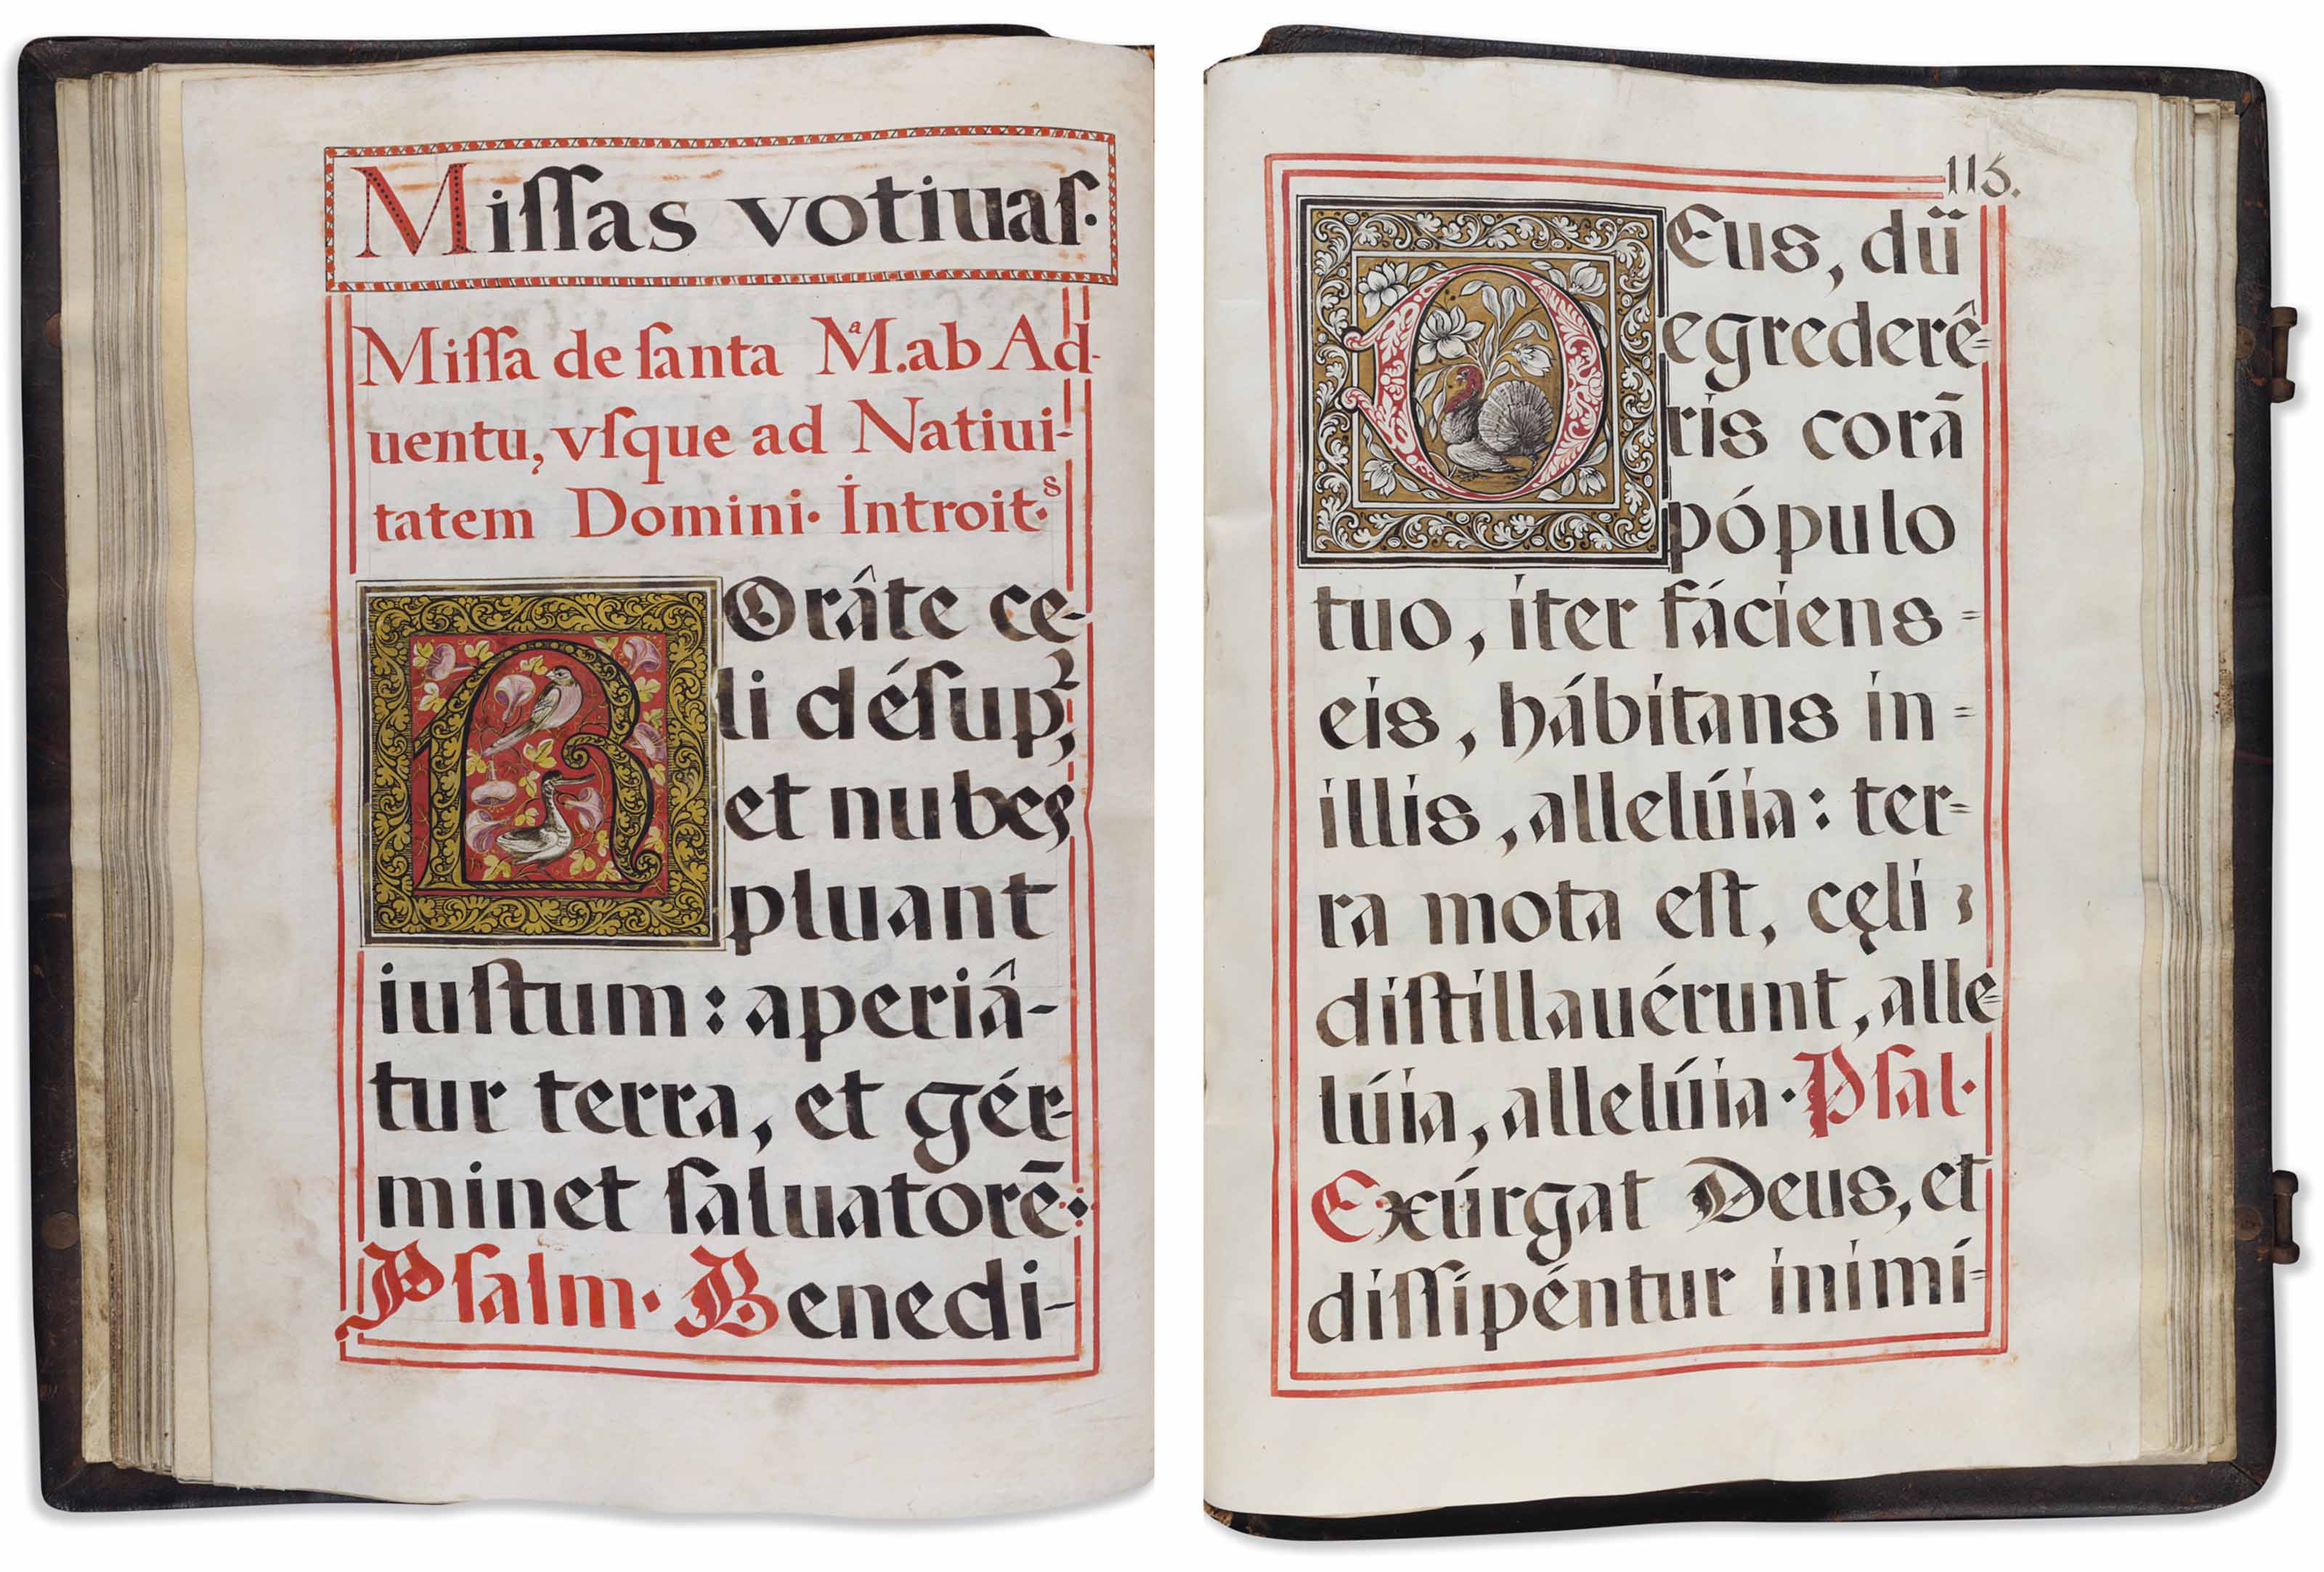 Miſſas votiuaſ.
Miſſa de ſanta Mª. ab Ad-
uentu, vſque ad Natiui-
tatem Domini. Introitˢ.
ROrâte ce-
li déſuꝑ,
et nubes
pluant
iuſtum: aperiâ-
tur terra, et gér-
minet ſaluatorē:
Pſalm. Benedi-
115.
DEus, dū
egrederê=
ris corā
pópulo
tuo, iter fáciens=
eis, hábitans in=
illis, allelúia: ter=
ra mota eſt, cęli
diſtillauérunt, alle=
lúia, allelúia. Pſal.
Exúrgat Deus, et
diſſipéntur inimí=